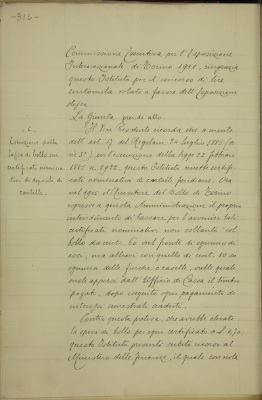 -316-
Commissione Esecutiva per l'Esposizione
Internazionale di Torino 1911, ringrazia
questo Istituto per il concorso di lire
centomila votato a favore dell'Esposizione
stessa.
La Giunta prende atto.
- 6. -
Il Vice Presidente ricorda che a mente
dell'art. 17 del Regolam. 24 luglio 1885 (n.
3) per l'esecuzione della legge 22 febbraio
1885 n. 2922, questo Istituto emette certifi-
cati nominativi di cartelle fondiarie. Ora
nel 1911 il Ricevitore del Bollo di Torino
espresse a questa Amministrazione il proprio
intendimento di tassare per l'avvenire tali
certificati nominativi, non soltanto col
bollo da cent. 60 sul fronte di ognuno di
essi, ma altresì con quello di cent. 10 su
ognuna delle finche o caselle, nelle quali
viene apposto dall'Ufficio di Cassa il timbro
pagato, dopo eseguito ogni pagamento di
interessi semestrali scaduti.
Contro questa pretesa, che avrebbe elevato
la spesa di bollo per ogni certificato a L.
questo Istituto presentò subito ricorso al
Ministero delle Finanze, il quale con nota
certificati nomina
tivi di deposito di
cartelle.